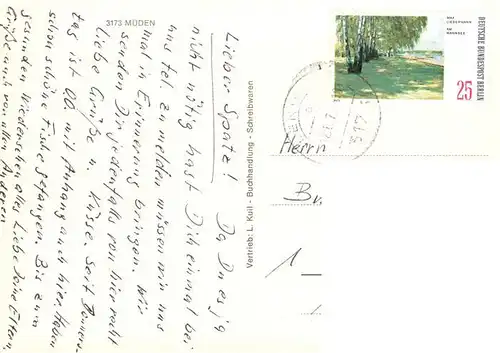 3173 MÜDEN
Lieber Spatz! Da Du es ja
nicht nötig hast Dich einmal bei
uns tel. zu melden müssen wir uns
mal in Erinnerung bringen. Wir
senden Dir jedenfalls von hier recht
liebe Grüße u. Küsse. Seit Donners-
tag ist mit Anhang auch hier. Haben
schon schöne Fische gefangen. Bis zum
gesunden Wiedersehen alles Liebe Deine Eltern.
Grüße auch von allen Anderen
Vertrieb: L. Kuil - Buchhandlung - Schreibwaren
MAX
LIEBERMANN
AM
WANNSEE
DEUTSCHE BUNDESPOST BERLIN
25
317
Herrn
B
1